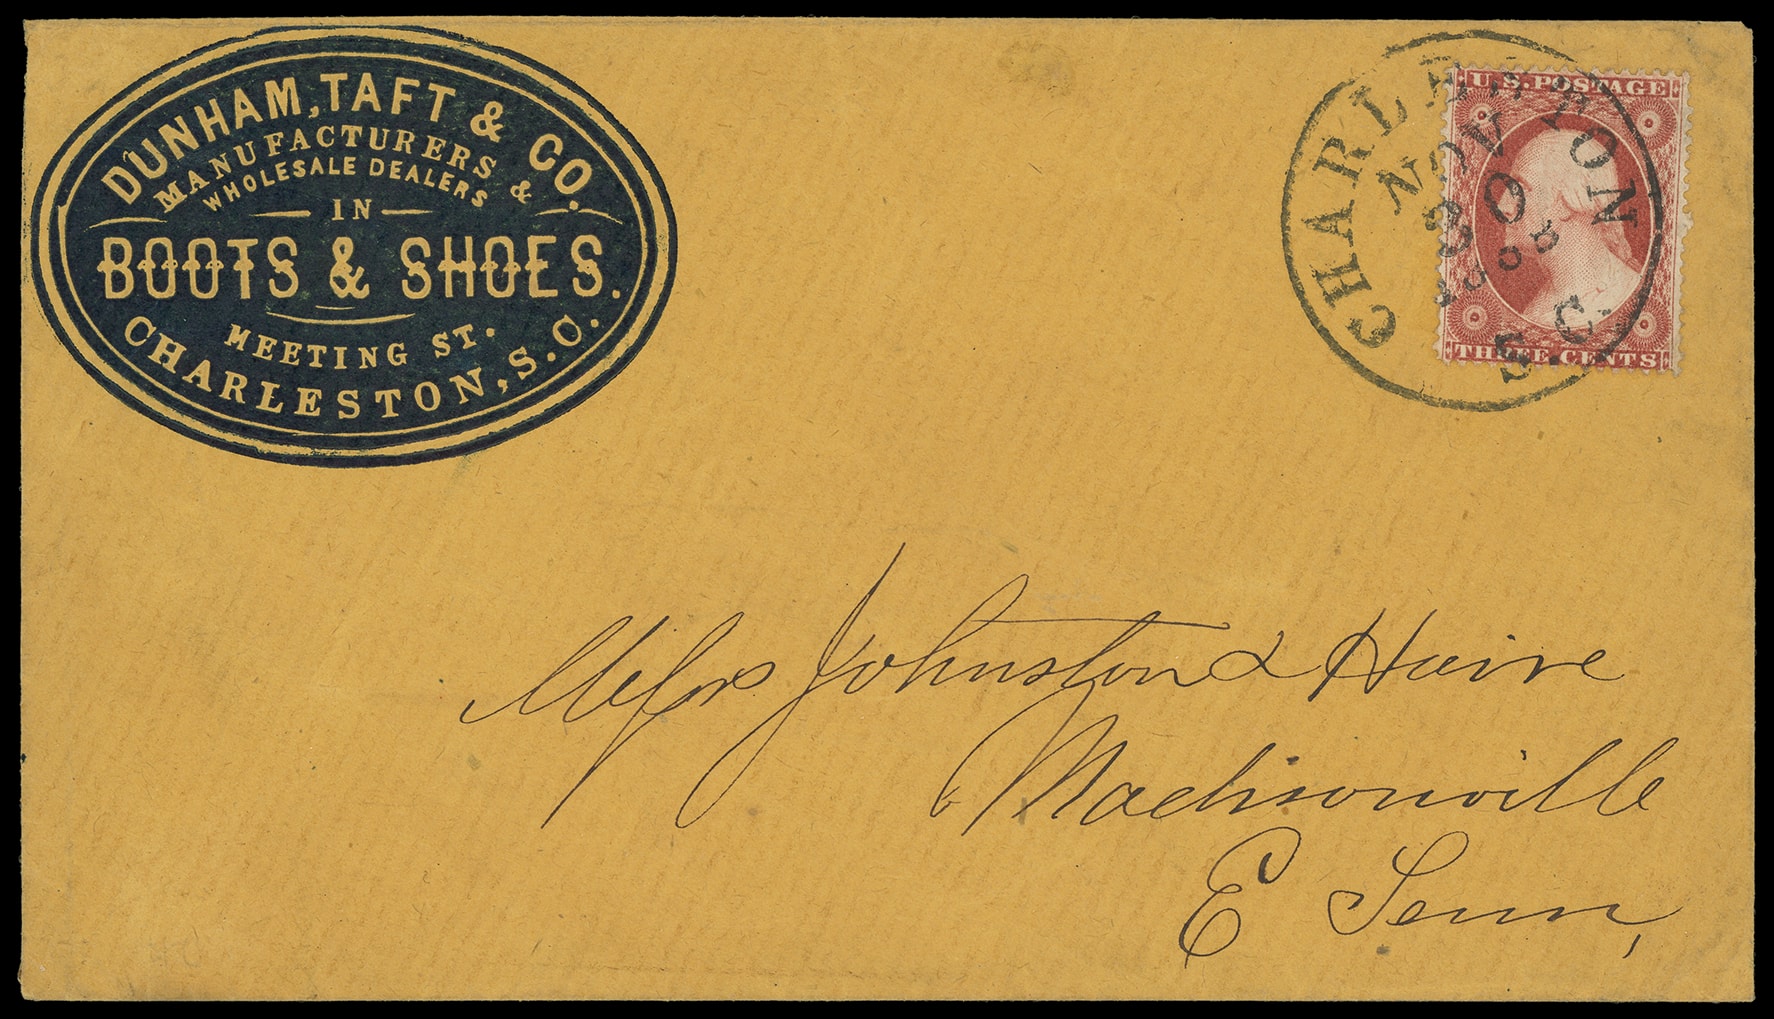 DUNHAM, TAFT & CO.
MANUFACTURERS &
WHOLESALE DEALERS
IN
BOOTS & SHOES.
MEETING ST.
CHARLESTON, S.C.
CHARLESTON
NOV
30
S.C.
U.S. POSTAGE
THREE CENTS
Messrs Johnston & Haire
Madisonville
E Tenn,